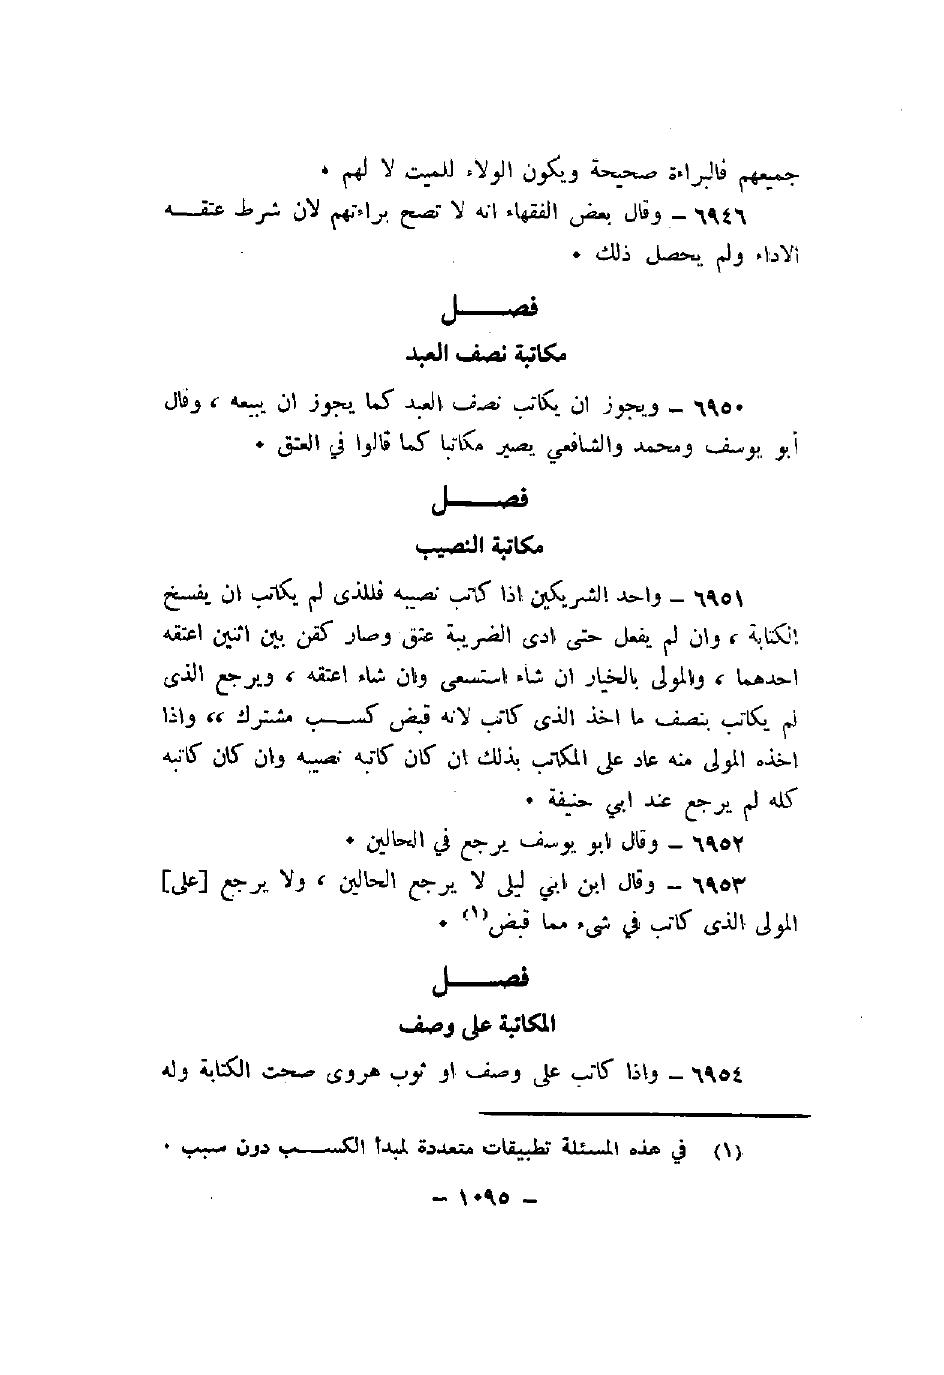 جميعهم فالبراءة صحيحة ويكون الولاء للميت لا لهم ٠
٦٩٤٦ ـ وقال بعض الفقهاء انه لا تصح براءتهم لان شرط عتقـــه
الاداء ولم يحصل ذلك ٠
فصـــــل
مكاتبة نصف العبد
٦٩٥٠ ـ ويجوز ان يكاتب نصف العبد كما يجوز ان يبيعه ، وقال
أبو يوسف ومحمد والشافعي يصير مكاتبا كما قالوا في العتق ٠
فصـــــل
مكاتبة النصيب
٦٩٥١ ـ واحد الشريكين اذا كاتب نصيبه فللذى لم يكاتب ان يفسخ
الكتابة ، وان لم يفعل حتى ادى الضريبة عتق وصار كقن بين اثنين اعتقه
احدهما ، والمولى بالخيار ان شاء استسعى وان شاء اعتقه ، ويرجع الذى
لم يكاتب بنصف ما اخذ الذى كاتب لانه قبض كســـب مشترك ،، واذا
اخذه المولى منه عاد على المكاتب بذلك ان كان كاتبه نصيبه وان كان كاتبه
كله لم يرجع عند ابي حنيفة ٠
٦٩٥٢ ـ وقال ابو يوسف يرجع في الحالين ٠
٦٩٥٣ ـ وقال ابن ابي ليلى لا يرجع الحالين ، ولا يرجع [على]
المولى الذى كاتب في شيء مما قبض(١) ٠
فصـــــل
المكاتبة على وصف
٦٩٥٤ ـ واذا كاتب على وصف او ثوب هروى صحت الكتابة وله
(١) في هذه المسئلة تطبيقات متعددة لمبدأ الكســـب دون سبب ٠
ـ ١٠٩٥ ـ